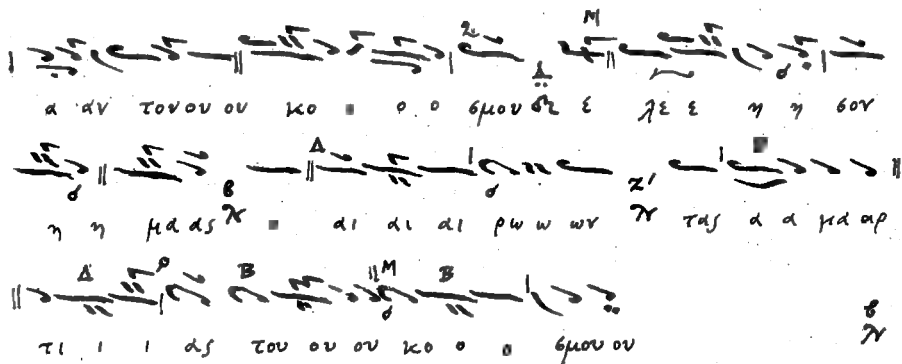 α αν τον ου ου κο ο ο σμου ε λε ε η η σον
η η μα ας αι αι αι ρω ω ων τας α α μα αρ
τι ι ι ας του ου ου κο ο σμου ου